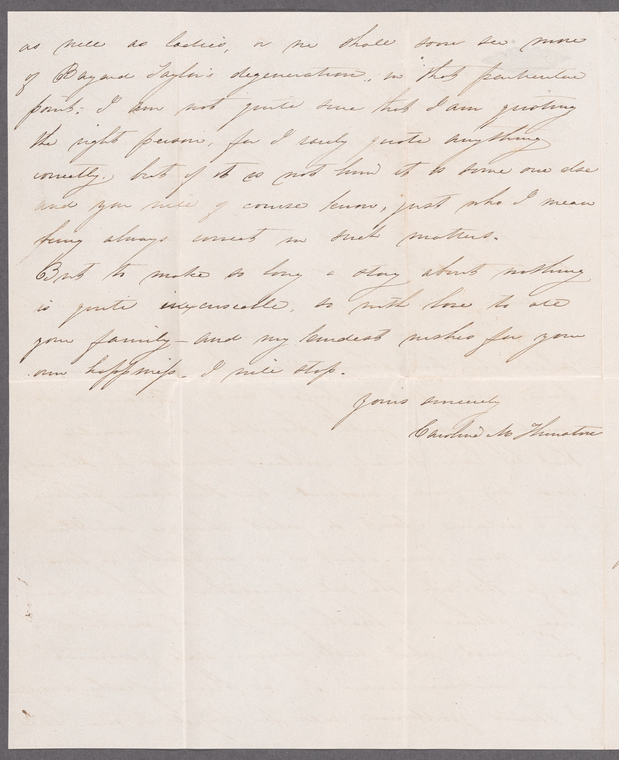 as well as ladies, or we shall soon see more
of Bayard Taylor's degeneration, in that particular
point; I am not quite sure that I am quoting
the right person, for I rarely quote anything
correctly, but if it is not him it is some one else
and you will of course know, just who I mean
being always correct in such matters.
But to make so long a story about nothing
is quite inexcusable, so with love to all
your family – and my kindest wishes for your
own happiness – I will stop.
Yours sincerely
Caroline M